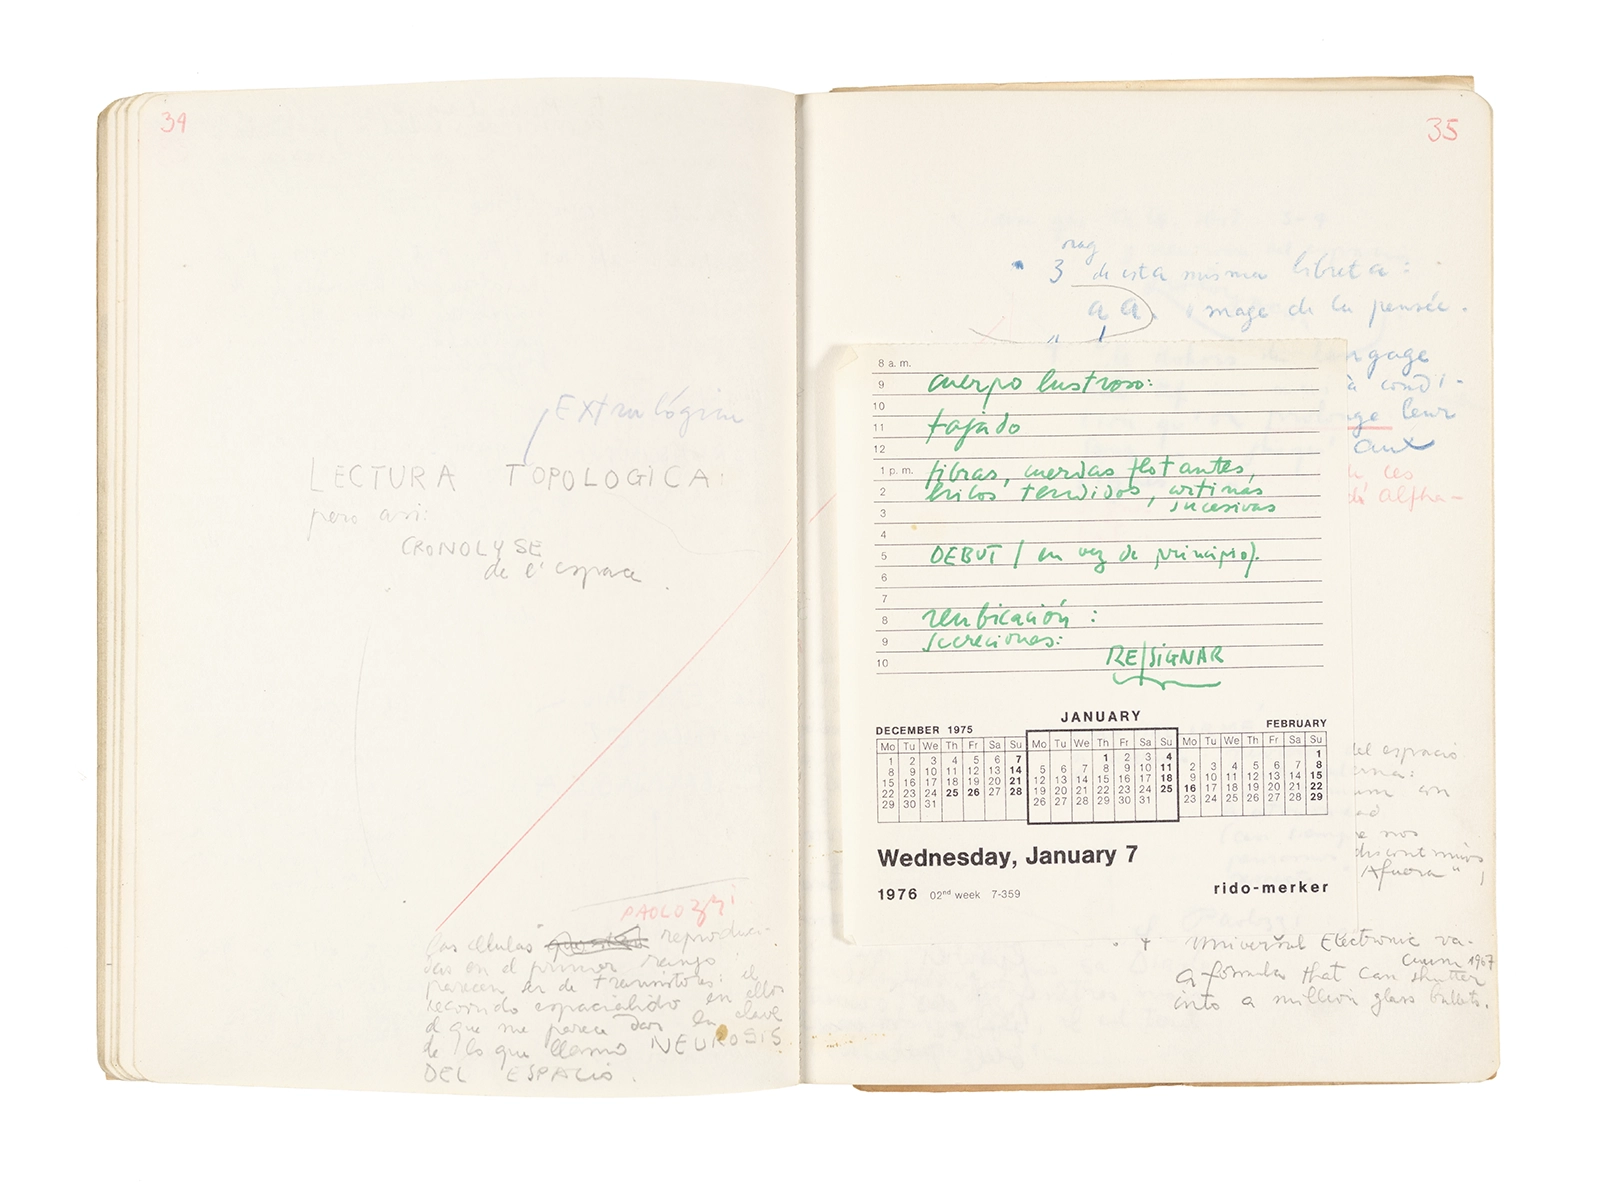 34
Extralógica
LECTURA TOPOLOGICA:
pero asi:
CRONOLYSE
de l'espace
PAOLOZZI
las células reproduci-
das en el primer rango
parecen ser de transistores: el
recorrido espacialido en ellos
el que me parece dar la clave
de lo que llamo NEUROSIS
DEL ESPACIO.
35
pag
3 de esta misma libreta:
a a. image de la pensée.
ngage
à condi-
ge leur
aux
ces
alpha-
8 a. m.
9 cuerpo lustroso:
10
11 tajado
12
1 p. m. fibras, cuerdas flotantes,
2 hilos tendidos, cortinas
3 sucesivas
4
5 DEBUT (en vez de principio).
6
7
8 reubicación:
9 secreciones:
10 RE/SIGNAR
DECEMBER 1975 JANUARY FEBRUARY
Mo Tu We Th Fr Sa Su Mo Tu We Th Fr Sa Su Mo Tu We Th Fr Sa Su
1 2 3 4 5 6 7 1 2 3 4 1
8 9 10 11 12 13 14 5 6 7 8 9 10 11 2 3 4 5 6 7 8
15 16 17 18 19 20 21 12 13 14 15 16 17 18 9 10 11 12 13 14 15
22 23 24 25 26 27 28 19 20 21 22 23 24 25 16 17 18 19 20 21 22
29 30 31 26 27 28 29 30 31 23 24 25 26 27 28 29
Wednesday, January 7
1976 02nd week 7-359 rido-merker
del espacio
nos
discontinuos
"Afuera",
Universal Electronic va-
cuum 1967
a formula that can shutter
into a million glass bullets.